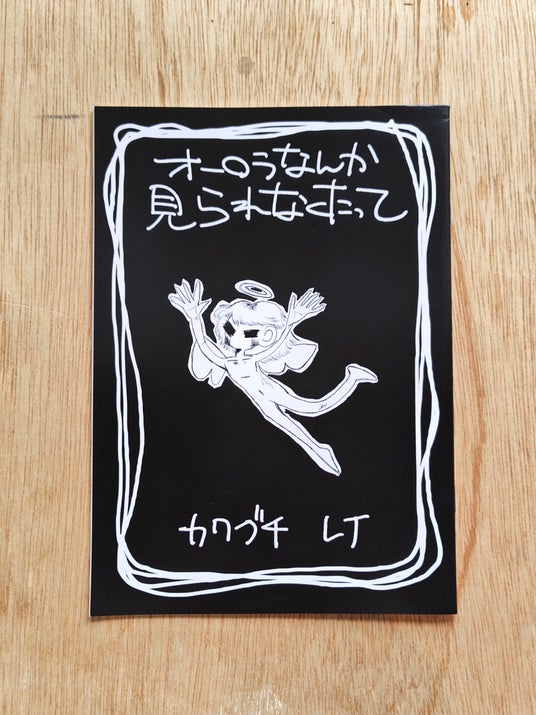 オーロラなんか
見られなくたって
カワグチ レイ